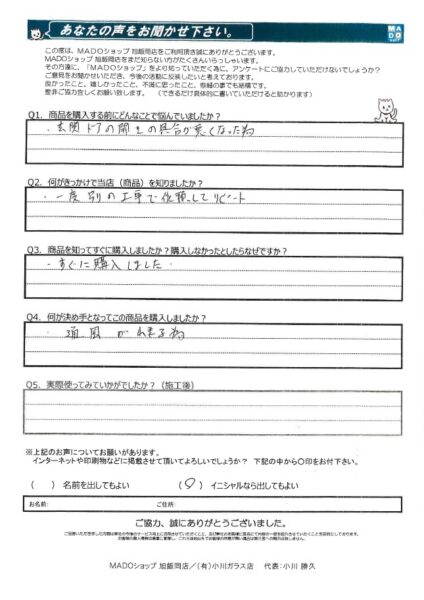 あなたの声をお聞かせ下さい。
MADO
この度は、MADOショップ 旭飯岡店をご利用頂き誠にありがとうございます。
MADOショップ 旭飯岡店をまだ知らない方がたくさんいらっしゃいます。
その方達に、「MADOショップ」をより知っていただく為に、アンケートにご協力していただけないでしょうか？
ご意見をお聞かせいただき、今後の活動に反映したいと考えております。
良かったこと、嬉しかったこと、不満に思ったこと、些細の事でも結構です。
是非ご協力宜しくお願い致します。　（できるだけ具体的に書いていただけると助かります）
Q1．商品を購入する前にどんなことで悩んでいましたか？
・玄関ドアの開きの具合が悪くなった為
Q2．何がきっかけで当店（商品）を知りましたか？
・一度別の工事で依頼してリピート
Q3．商品を知ってすぐに購入しましたか？購入しなかったとしたらなぜですか？
・すぐに購入しました・
Q4．何が決め手となってこの商品を購入しましたか？
・通風が出来る為
Q5．実際使ってみていかがでしたか？（施工後）
※上記のお声についてお願いがあります。
インターネットや印刷物などに掲載させて頂いてよろしいでしょうか？　下記の中から〇印をお付下さい。
（　）名前を出してもよい　（〇）イニシャルなら出してもよい
お名前:　ご住所:
ご協力、誠にありがとうございました。
MADOショップ 旭飯岡店／（有）小川ガラス店　代表：小川 勝久